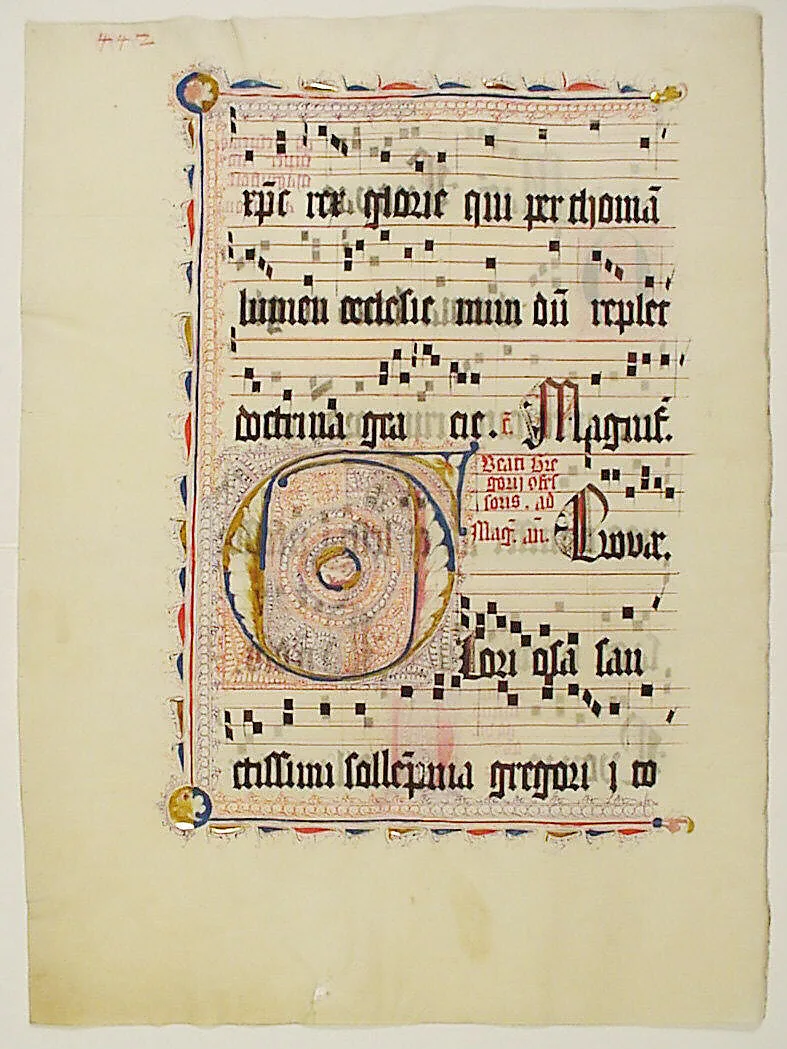 442
xp̄e rex glorie qui per thomā
lumen ecclesie mun dū replet
doctrina gra cie. Magnif̄.
Beati Gre
gorij ofes
soris. ad
Mag̃. añ. Euouae.
Glori osa san
ctissimi sollēpnia gregori j co